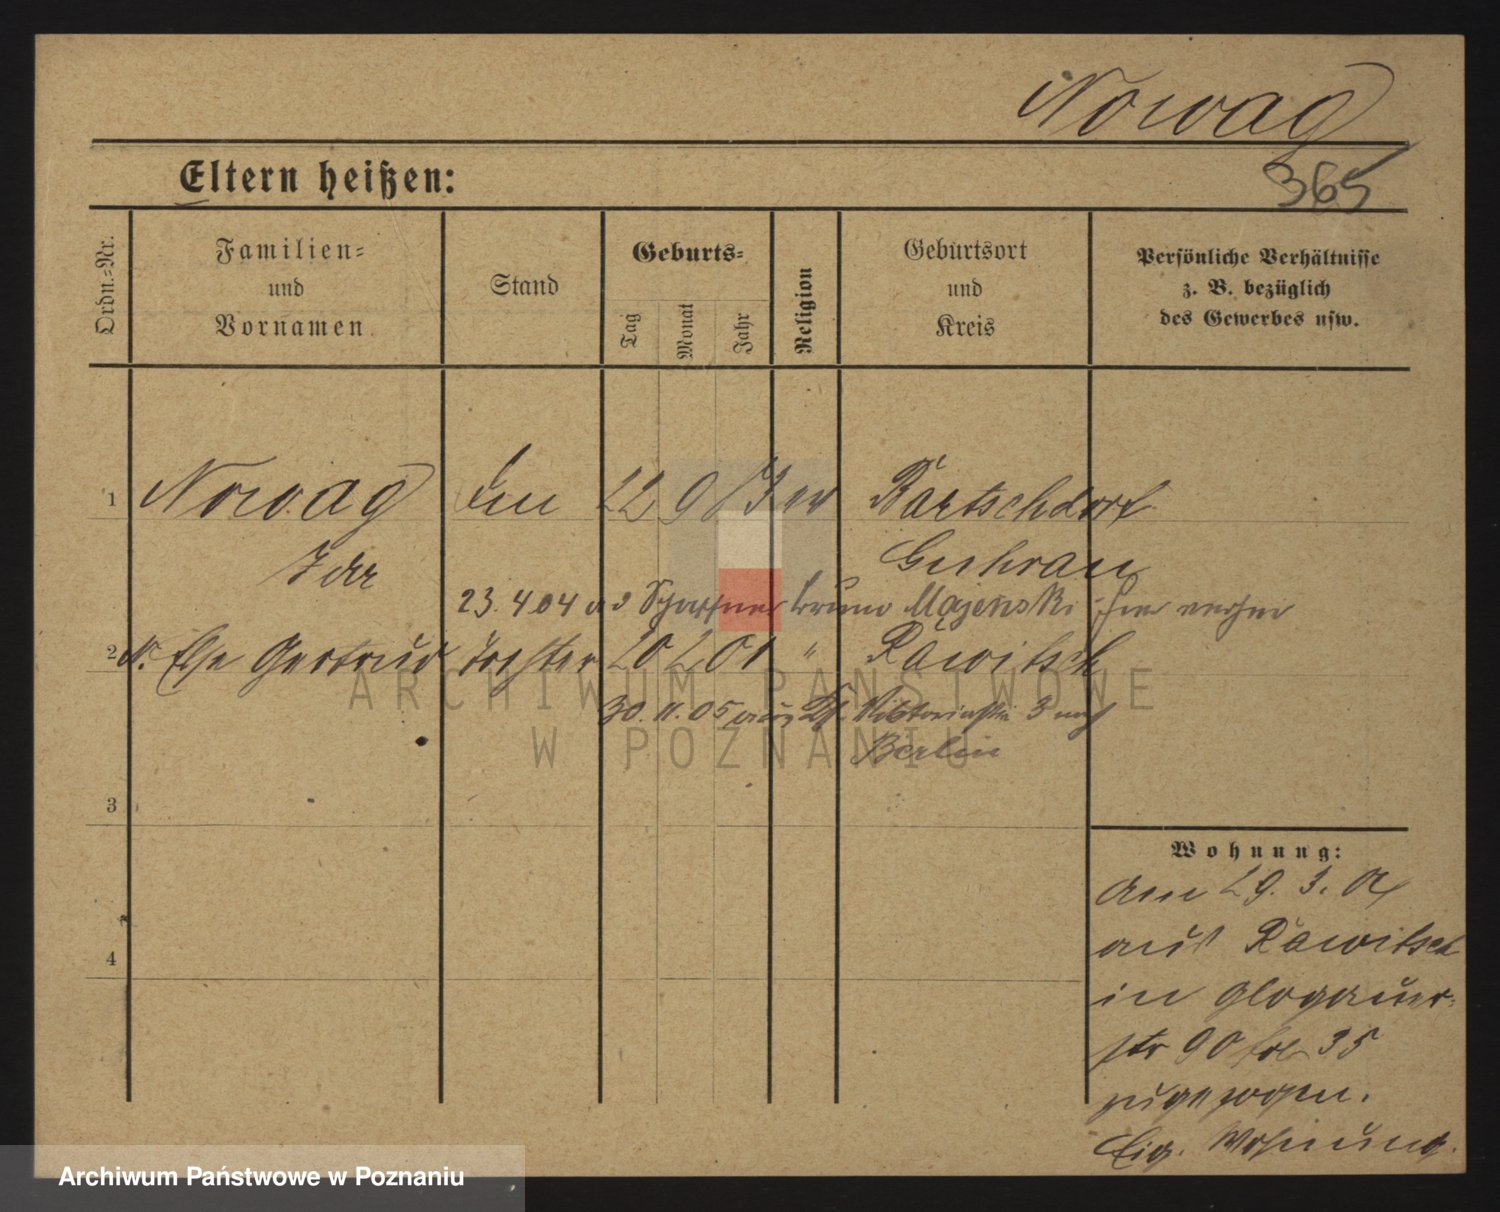 Nowag
365
Eltern heißen:
Ordn.-Nr.
Familien-
und
Vornamen
Stand
Geburts-
Tag
Monat
Jahr
Religion
Geburtsort
und
Kreis
Persönliche Verhältnisse
z. B. bezüglich
des Gewerbes usw.
1 Nowag 22 9 73 ev Bartschdorf
Ida Guhrau
23.4.04 Bruno Majenski
2 N. Else Gertrud Tochter 20 2 01 " Rawitsch
30. 11. 05 Viktoriastr 3 nach
Berlin
3
4
Wohnung:
Am 29. 3. 04
aus Rawitsch
in Glogauer-
str 90 35
zugezogen.
Eig. Wohnung.
ARCHIWUM PAŃSTWOWE
W POZNANIU
Archiwum Państwowe w Poznaniu